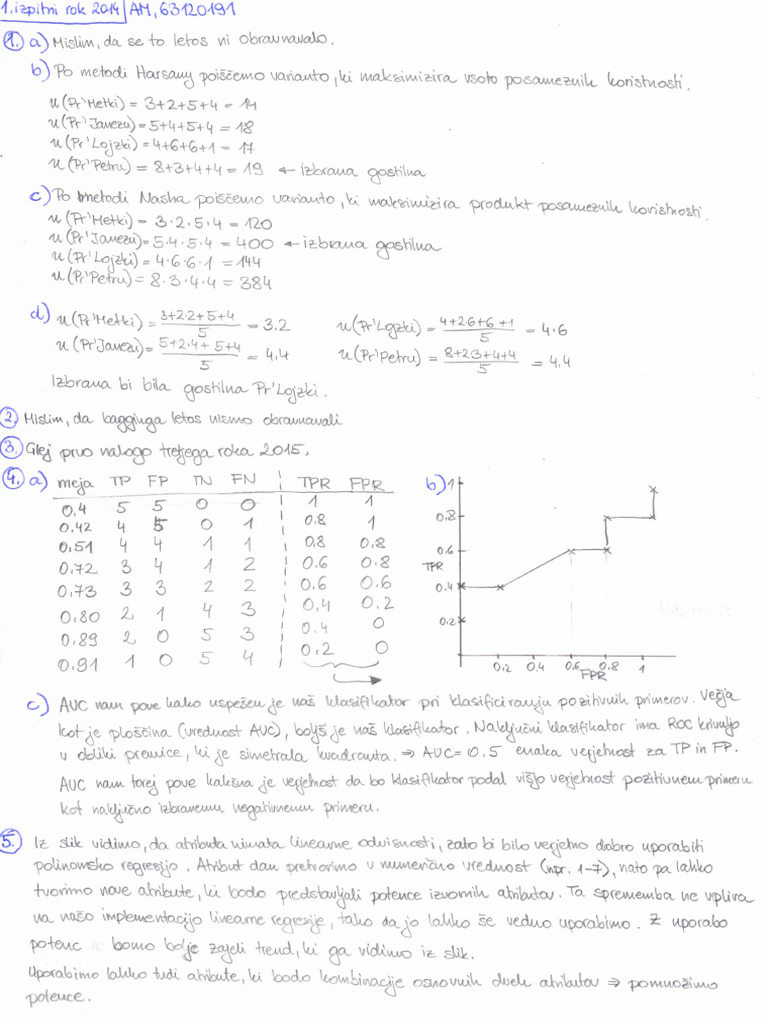 1. izpitni rok 2014 | AM, 63120191
1. a) Mislim, da se to letos ni obravnavalo.
b) Po metodi Harsany poiščemo varianto, ki maksimizira vsoto posameznih koristnosti.
u(Pr'Metki) = 3+2+5+4 = 14
u(Pr'Janezu) = 5+4+5+4 = 18
u(Pr'Lojzki) = 4+6+6+1 = 17
u(Pr'Petru) = 8+3+4+4 = 19 ← izbrana gostilna
c) Po metodi Nasha poiščemo varianto, ki maksimizira produkt posameznih koristnosti.
u(Pr'Metki) = 3·2·5·4 = 120
u(Pr'Janezu) = 5·4·5·4 = 400 ← izbrana gostilna
u(Pr'Lojzki) = 4·6·6·1 = 144
u(Pr'Petru) = 8·3·4·4 = 384
d) u(Pr'Metki) = (3+2·2+5+4)/5 = 3.2 u(Pr'Lojzki) = (4+2·6+6+1)/5 = 4.6
u(Pr'Janezu) = (5+2·4+5+4)/5 = 4.4 u(Pr'Petru) = (8+2·3+4+4)/5 = 4.4
Izbrana bi bila gostilna Pr'Lojzki.
2. Mislim, da bagginga letos nismo obravnavali.
3. Glej prvo nalogo tretjega roka 2015.
4. a) meja TP FP TN FN TPR FPR
0.4 5 5 0 0 1 1
0.42 4 5 0 1 0.8 1
0.51 4 4 1 1 0.8 0.8
0.72 3 4 1 2 0.6 0.8
0.73 3 3 2 2 0.6 0.6
0.80 2 1 4 3 0.4 0.2
0.89 2 0 5 3 0.4 0
0.91 1 0 5 4 0.2 0
b) 1
0.8
0.6
TPR
0.4
0.2
0.2 0.4 0.6 0.8 1
FPR
c) AUC nam pove kako uspešen je naš klasifikator pri klasificiranju pozitivnih primerov. Večja
kot je ploščina (vrednost AUC), boljši je naš klasifikator. Naključni klasifikator ima ROC krivuljo
v obliki premice, ki je simetrala kvadranta. ⇒ AUC = 0.5 enaka verjetnost za TP in FP.
AUC nam torej pove kakšna je verjetnost da bo klasifikator podal višjo verjetnost pozitivnemu primeru
kot naključno izbranemu negativnemu primeru.
5. Iz slik vidimo, da atributa nimata linearne odvisnosti, zato bi bilo verjetno dobro uporabiti
polinomsko regresijo. Atribut dan pretvorimo v numerično vrednost (npr. 1-7), nato pa lahko
tvorimo nove atribute, ki bodo predstavljali potence izvornih atributov. Ta sprememba ne vpliva
na našo implementacijo linearne regresije, tako da jo lahko še vedno uporabimo. Z uporabo
potenc bomo bolje zajeli trend, ki ga vidimo iz slik.
Uporabimo lahko tudi atribute, ki bodo kombinacije osnovnih dveh atributov ⇒ pomnožimo
potence.